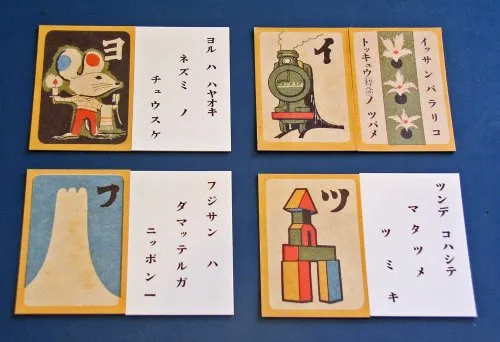 ヨ
ヨル ハ ハヤオキ
ネズミ ノ
チュウスケ
イ
イッサンバラリコ
トッキュウ(特急)ノ ツバメ
フ
フジサン ハ
ダマッテルガ
ニッポン一
ツ
ツンデ コハシテ
マタツメ
ツミキ